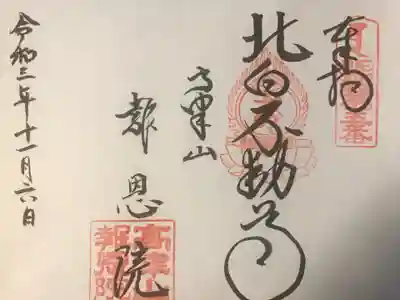 奉拝
北向不動尊
高津山
報恩院
高津山
報恩院
令和三年十一月六日